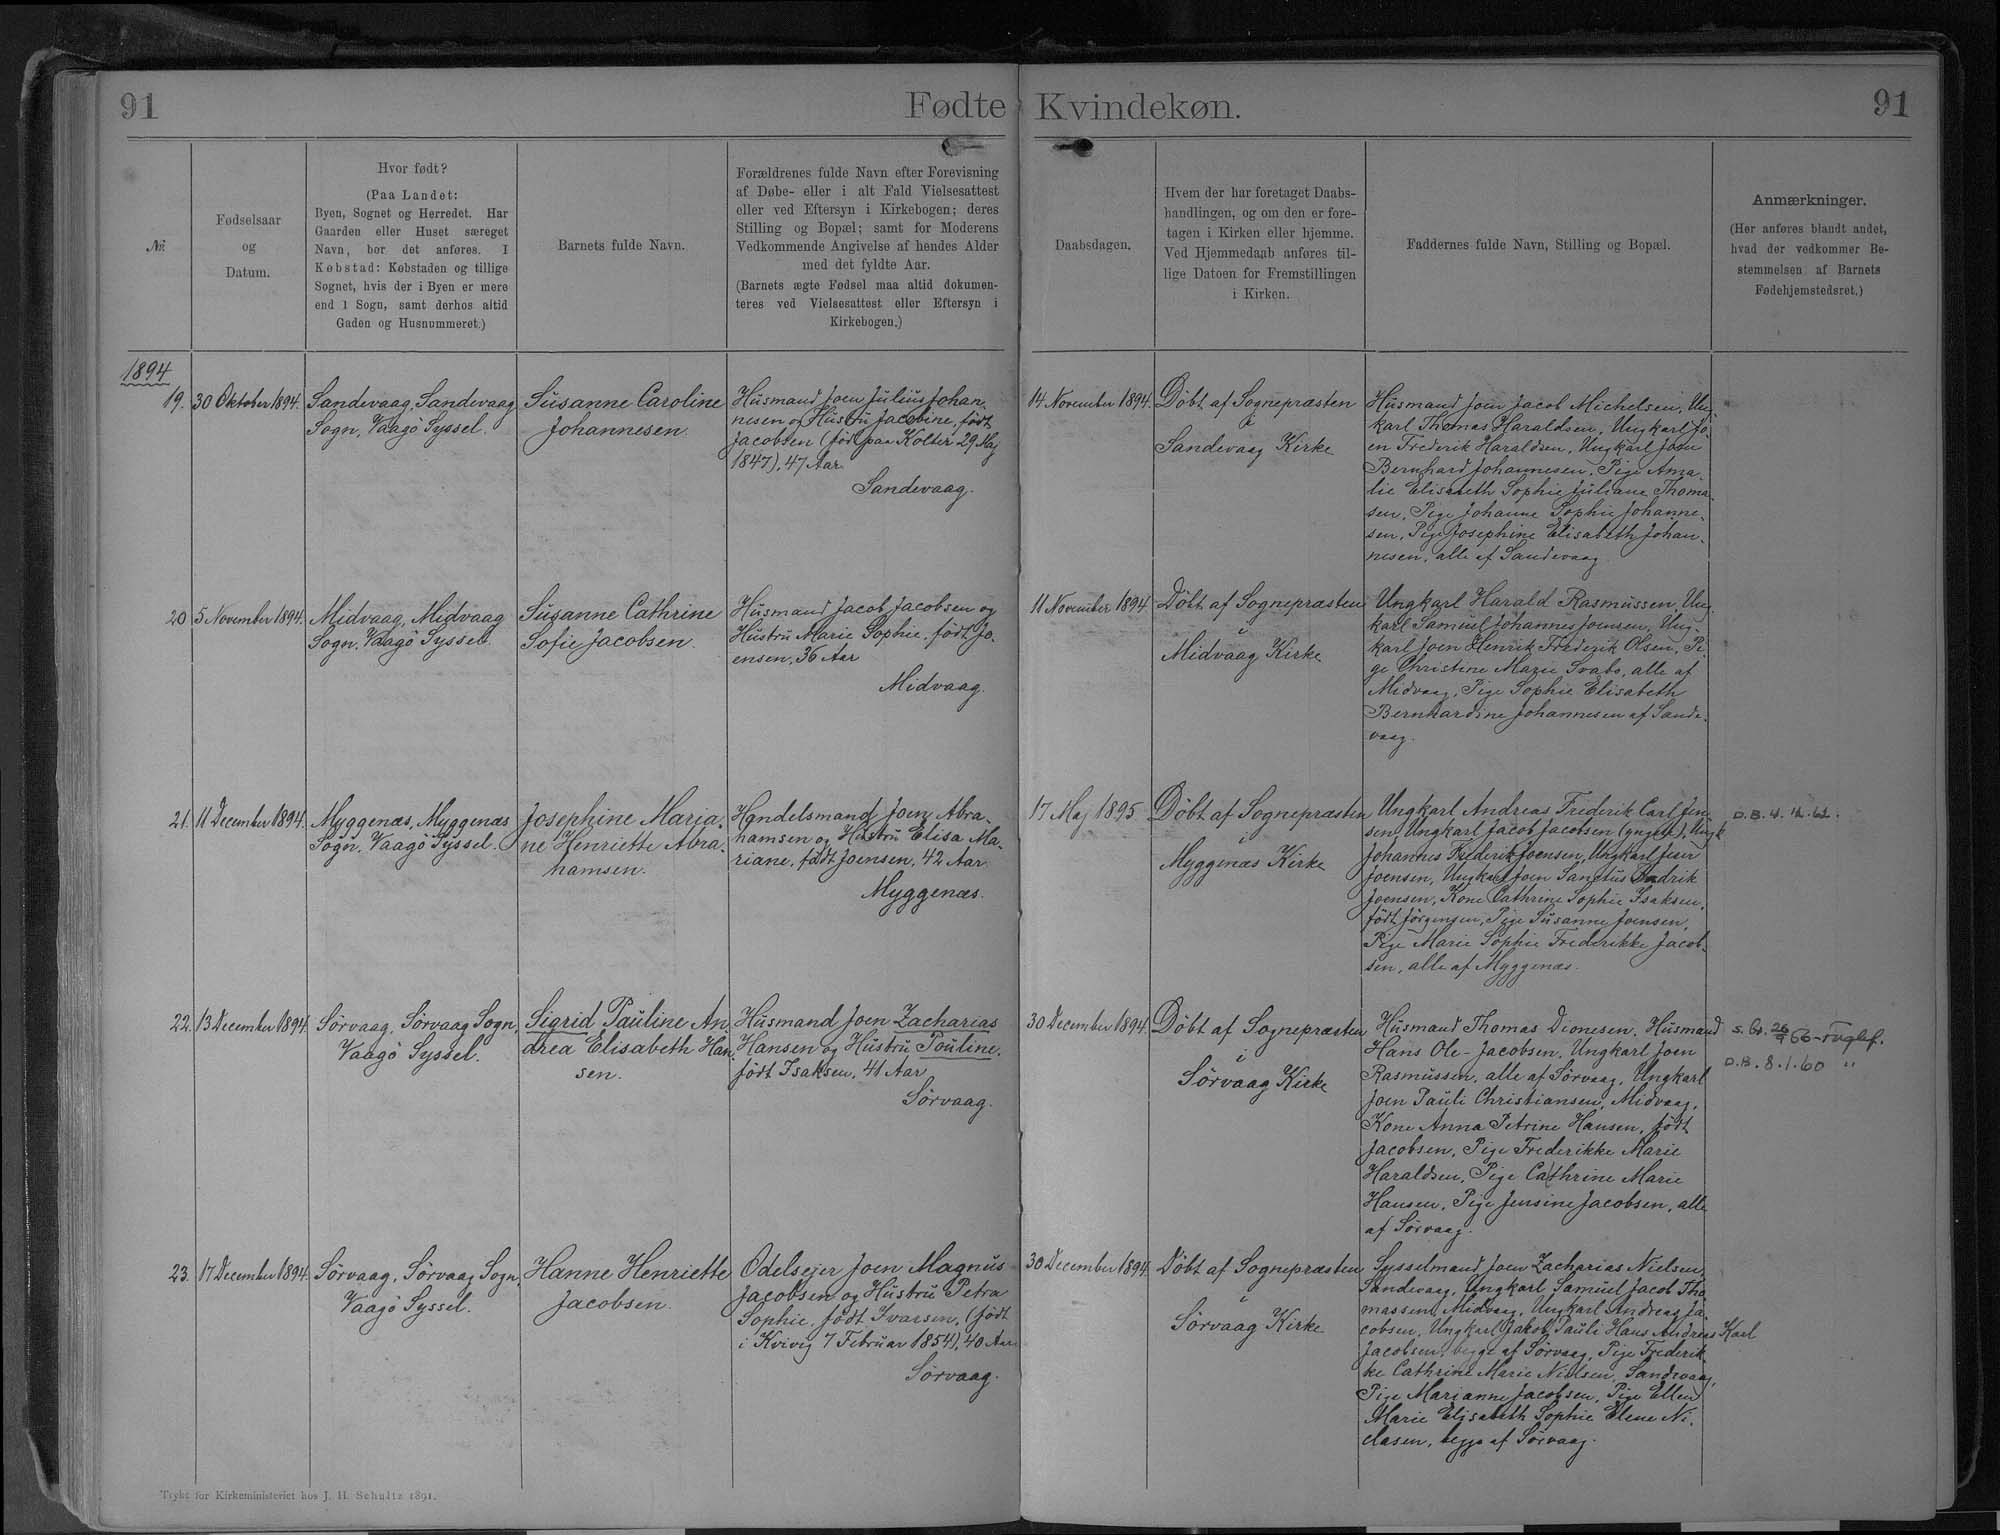 91
Fødte
Kvindekøn.
91
№
Fødselsaar
og
Datum.
Hvor født?
(Paa Landet:
Byen, Sognet og Herredet. Har
Gaarden eller Huset særeget
Navn, bør det anføres. I
Købstad: Købstaden og tillige
Sognet, hvis der i Byen er mere
end 1 Sogn, samt derhos altid
Gaden og Husnummeret.)
Barnets fulde Navn.
Forældrenes fulde Navn efter Forevisning
af Døbe- eller i alt Fald Vielsesattest
eller ved Eftersyn i Kirkebogen; deres
Stilling og Bopæl; samt for Moderens
Vedkommende Angivelse af hendes Alder
med det fyldte Aar.
(Barnets ægte Fødsel maa altid dokumen-
teres ved Vielsesattest eller Eftersyn i
Kirkebogen.)
Daabsdagen.
Hvem der har foretaget Daabs-
handlingen, og om den er fore-
tagen i Kirken eller hjemme.
Ved Hjemmedaab anføres til-
lige Datoen for Fremstillingen
i Kirken.
Faddernes fulde Navn, Stilling og Bopæl.
Anmærkninger.
(Her anføres blandt andet,
hvad der vedkommer Be-
stemmelsen af Barnets
Fødehjemstedsret.)
1894
19.
30 Oktober 1894.
Sandevaag, Sandevaag
Sogn, Vaagö Syssel.
Susanne Caroline
Johannesen.
Husmand Joen Julius Johan-
nesen og Hustru Jacobine, født
Jacobsen (født paa Kolter 29 Maj
1847), 47 Aar
Sandevaag.
14 November 1894.
Döbt af Sognepræsten
i
Sandevaag Kirke
Husmand Joen Jacob Michelsen, Ung-
karl Thomas Haraldsen, Ungkarl Jo-
en Frederik Haraldsen, Ungkarl Joen
Bernhard Johannesen, Pige Ama-
lie Elisabeth Sophie Juliane Thoma-
sen, Pige Johanne Sophie Johanne-
sen, Pige Josephine Elisabeth Johan-
nesen, alle af Sandevaag
20
5 November 1894.
Midvaag, Midvaag
Sogn, Vaagö Syssel.
Susanne Cathrine
Sofie Jacobsen.
Husmand Jacob Jacobsen og
Hustru Marie Sophie, født Jo-
ensen, 36 Aar
Midvaag.
11 November 1894.
Döbt af Sognepræsten
i
Midvaag Kirke
Ungkarl Harald Rasmussen, Ung-
karl Samuel Johannes Joensen, Ung-
karl Joen Henrik Frederik Olsen, Pi-
ge Christine Marie Svabo, alle af
Midvaag, Pige Sophie Elisabeth
Bernhardine Johannesen af Sande-
vaag.
21.
11 December 1894.
Myggenæs, Myggenæs
Sogn, Vaagö Syssel.
Josephine Maria-
ne Henriette Abra-
hamsen.
Handelsmand Joen Abra-
hamsen og Hustru Elisa Ma-
riane, født Joensen, 42 Aar
Myggenæs.
17 Maj 1895
Döbt af Sognepræsten
i
Myggenæs Kirke
Ungkarl Andreas Frederik Carl Jen-
sen, Ungkarl Jacob Jacobsen (yngste), Ungk.
Johannes Frederik Joensen, Ungkarl
Joensen, Ungkarl Joen Sanctus
Joensen, Kone Cathrine Sophie Isaksen,
født Jörgensen, Pige Susanne Joensen,
Pige Marie Sophie Frederikke Jacob-
sen, alle af Myggenæs.
22.
13 December 1894.
Sörvaag, Sörvaag Sogn,
Vaagö Syssel.
Sigrid Pauline An-
drea Elisabeth Han-
sen.
Husmand Joen Zacharias
Hansen og Hustru Pouline,
født Isaksen, 41 Aar
Sörvaag.
30 December 1894.
Döbt af Sognepræsten
i
Sörvaag Kirke
Husmand Thomas Dionesen, Husmand
Hans Ole-Jacobsen, Ungkarl Joen
Rasmussen, alle af Sörvaag, Ungkarl
Joen Pauli Christiansen, Midvaag,
Kone Anna Petrine Hansen, født
Jacobsen, Pige Frederikke Marie
Haraldsen, Pige Cathrine Marie
Hansen, Pige Jensine Jacobsen, alle
af Sörvaag.
D.B. 8.1.60 "
23.
17 December 1894.
Sörvaag, Sörvaag Sogn,
Vaagö Syssel.
Hanne Henriette
Jacobsen.
Odelsejer Joen Magnus
Jacobsen og Hustru Petra
Sophie, født Ivarsen, (født
i Kvivig 7 Februar 1854), 40 Aar
Sörvaag.
30 December 1894.
Döbt af Sognepræsten
i
Sörvaag Kirke
Sysselmand Joen Zacharias Nielsen,
Sandevaag, Ungkarl Samuel Jacob Tho-
massen, Midvaag, Ungkarl Andreas Ja-
cobsen, Ungkarl Jakob Pauli Hans Andreas Karl
Jacobsen, begge af Sörvaag, Pige Frederik-
ke Cathrine Marie Nielsen, Sandevaag,
Pige Marianne Jacobsen, Pige Ellen
Marie Elisabeth Sophie Elene Ni-
clasen, begge af Sörvaag.
Trykt for Kirkeministeriet hos J. H. Schultz 1891.